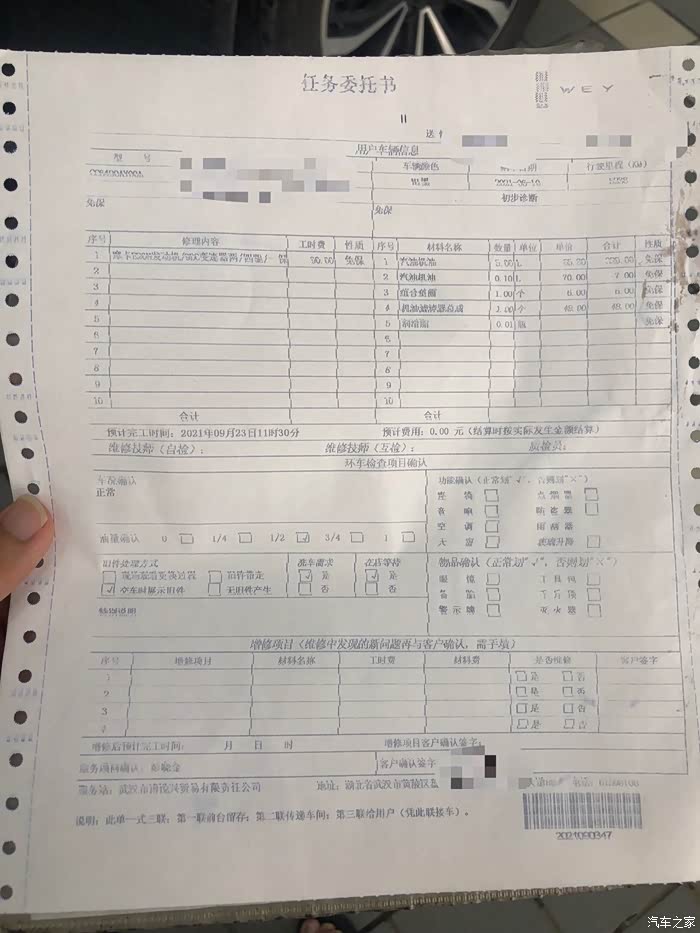 任务委托书
WEY
用户车辆信息
型 号
车辆颜色
行驶里程（KM）
初步诊断
免保
免保
序号 修理内容 工时费 性质 序号 材料名称 数量 单位 单价 合计 性质
1 免保 1 汽油机油 5.00 L 免保
2 2 汽油机油 0.10 L 70.00 7.00 免保
3 3 组合垫圈 1.00 个 6.00 6.00 免保
4 4 机油滤清器总成 1.00 个 免保
5 5 润滑脂 0.01 瓶 免保
6 6
7 7
8 8
9 9
10 10
合计 合计
预计完工时间：2021年09月23日11时30分 预计费用：0.00 元（结算时按实际发生金额结算）
维修技师（自检）： 维修技师（互检）： 质检员：
环车检查项目确认
车况确认
正常
功能确认（正常划"√"，否则划"×"）
座 椅 点烟器
音 响
空 调 雨刮器
天 窗 玻璃升降
油量确认 0 1/4 1/2 √ 3/4 1
旧件处理方式 洗车需求 在店等待
旧件带走 √ 是 √ 是
√ 交车时展示旧件 无旧件产生 否 否
物品确认（正常划"√"，否则划"×"）
眼 镜 工具包
备 胎 千斤顶
警示牌 灭火器
特别说明
增修项目（维修中发现的新问题再与客户确认，需手填）
序号 增修项目 材料名称 工时费 材料费 是否维修 客户签字
1 是 否
2 是 否
3 是 否
4 是 否
增修后预计完工时间： 月 日 时 增修项目客户确认签字：
服务顾问确认： 客户确认签字
服务站： 地址：湖北省武汉市黄陂区
说明：此单一式三联：第一联前台留存；第二联传递车间；第三联给用户（凭此联接车）。
2021090347
汽车之家